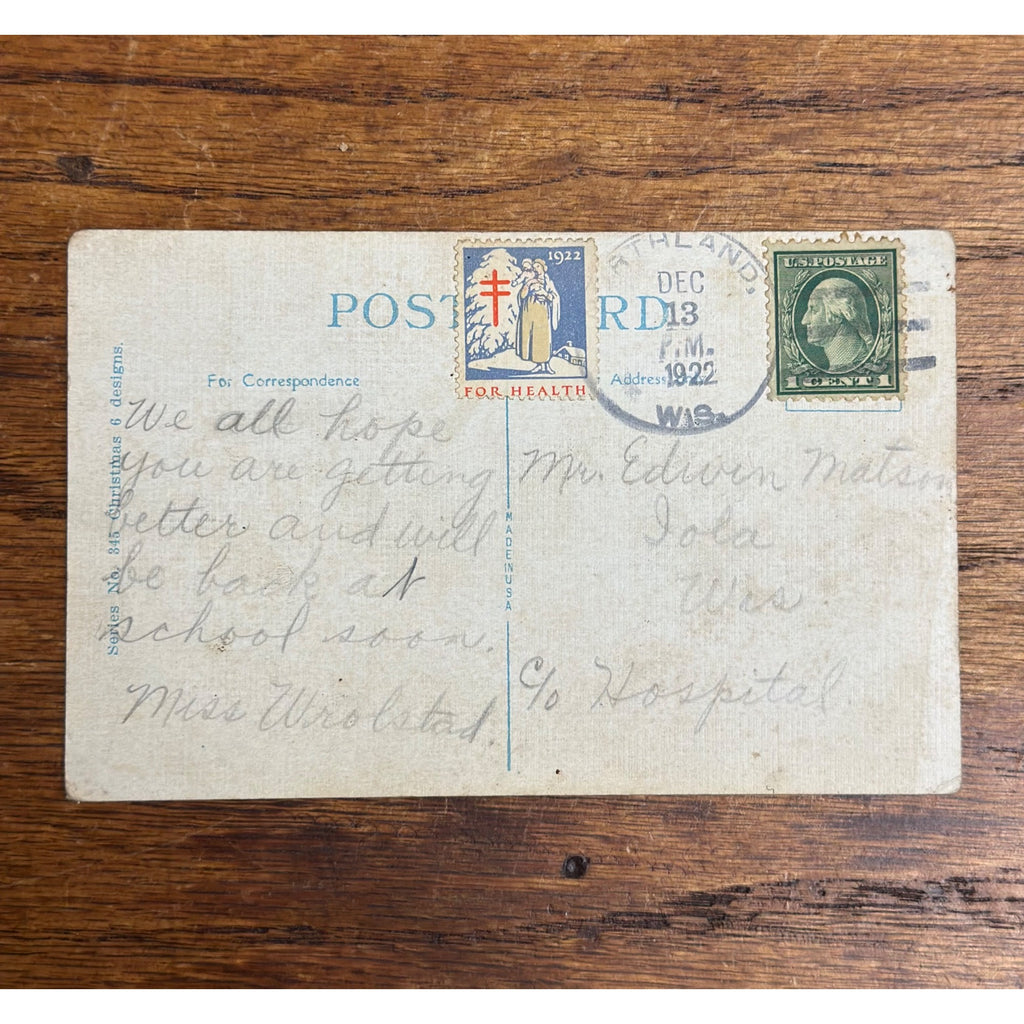 POST RD
For Correspondence
Address
Series No. 345 Christmas 6 designs.
MADE IN USA
1922
FOR HEALTH
THLAND,
DEC
13
P.M.
1922
WIS.
U.S. POSTAGE
1 CENT 1
We all hope
you are getting
better and will
be back at
school soon.
Miss Wrolstad.
Mr. Edwin Matson
Iola
Wis
c/o Hospital